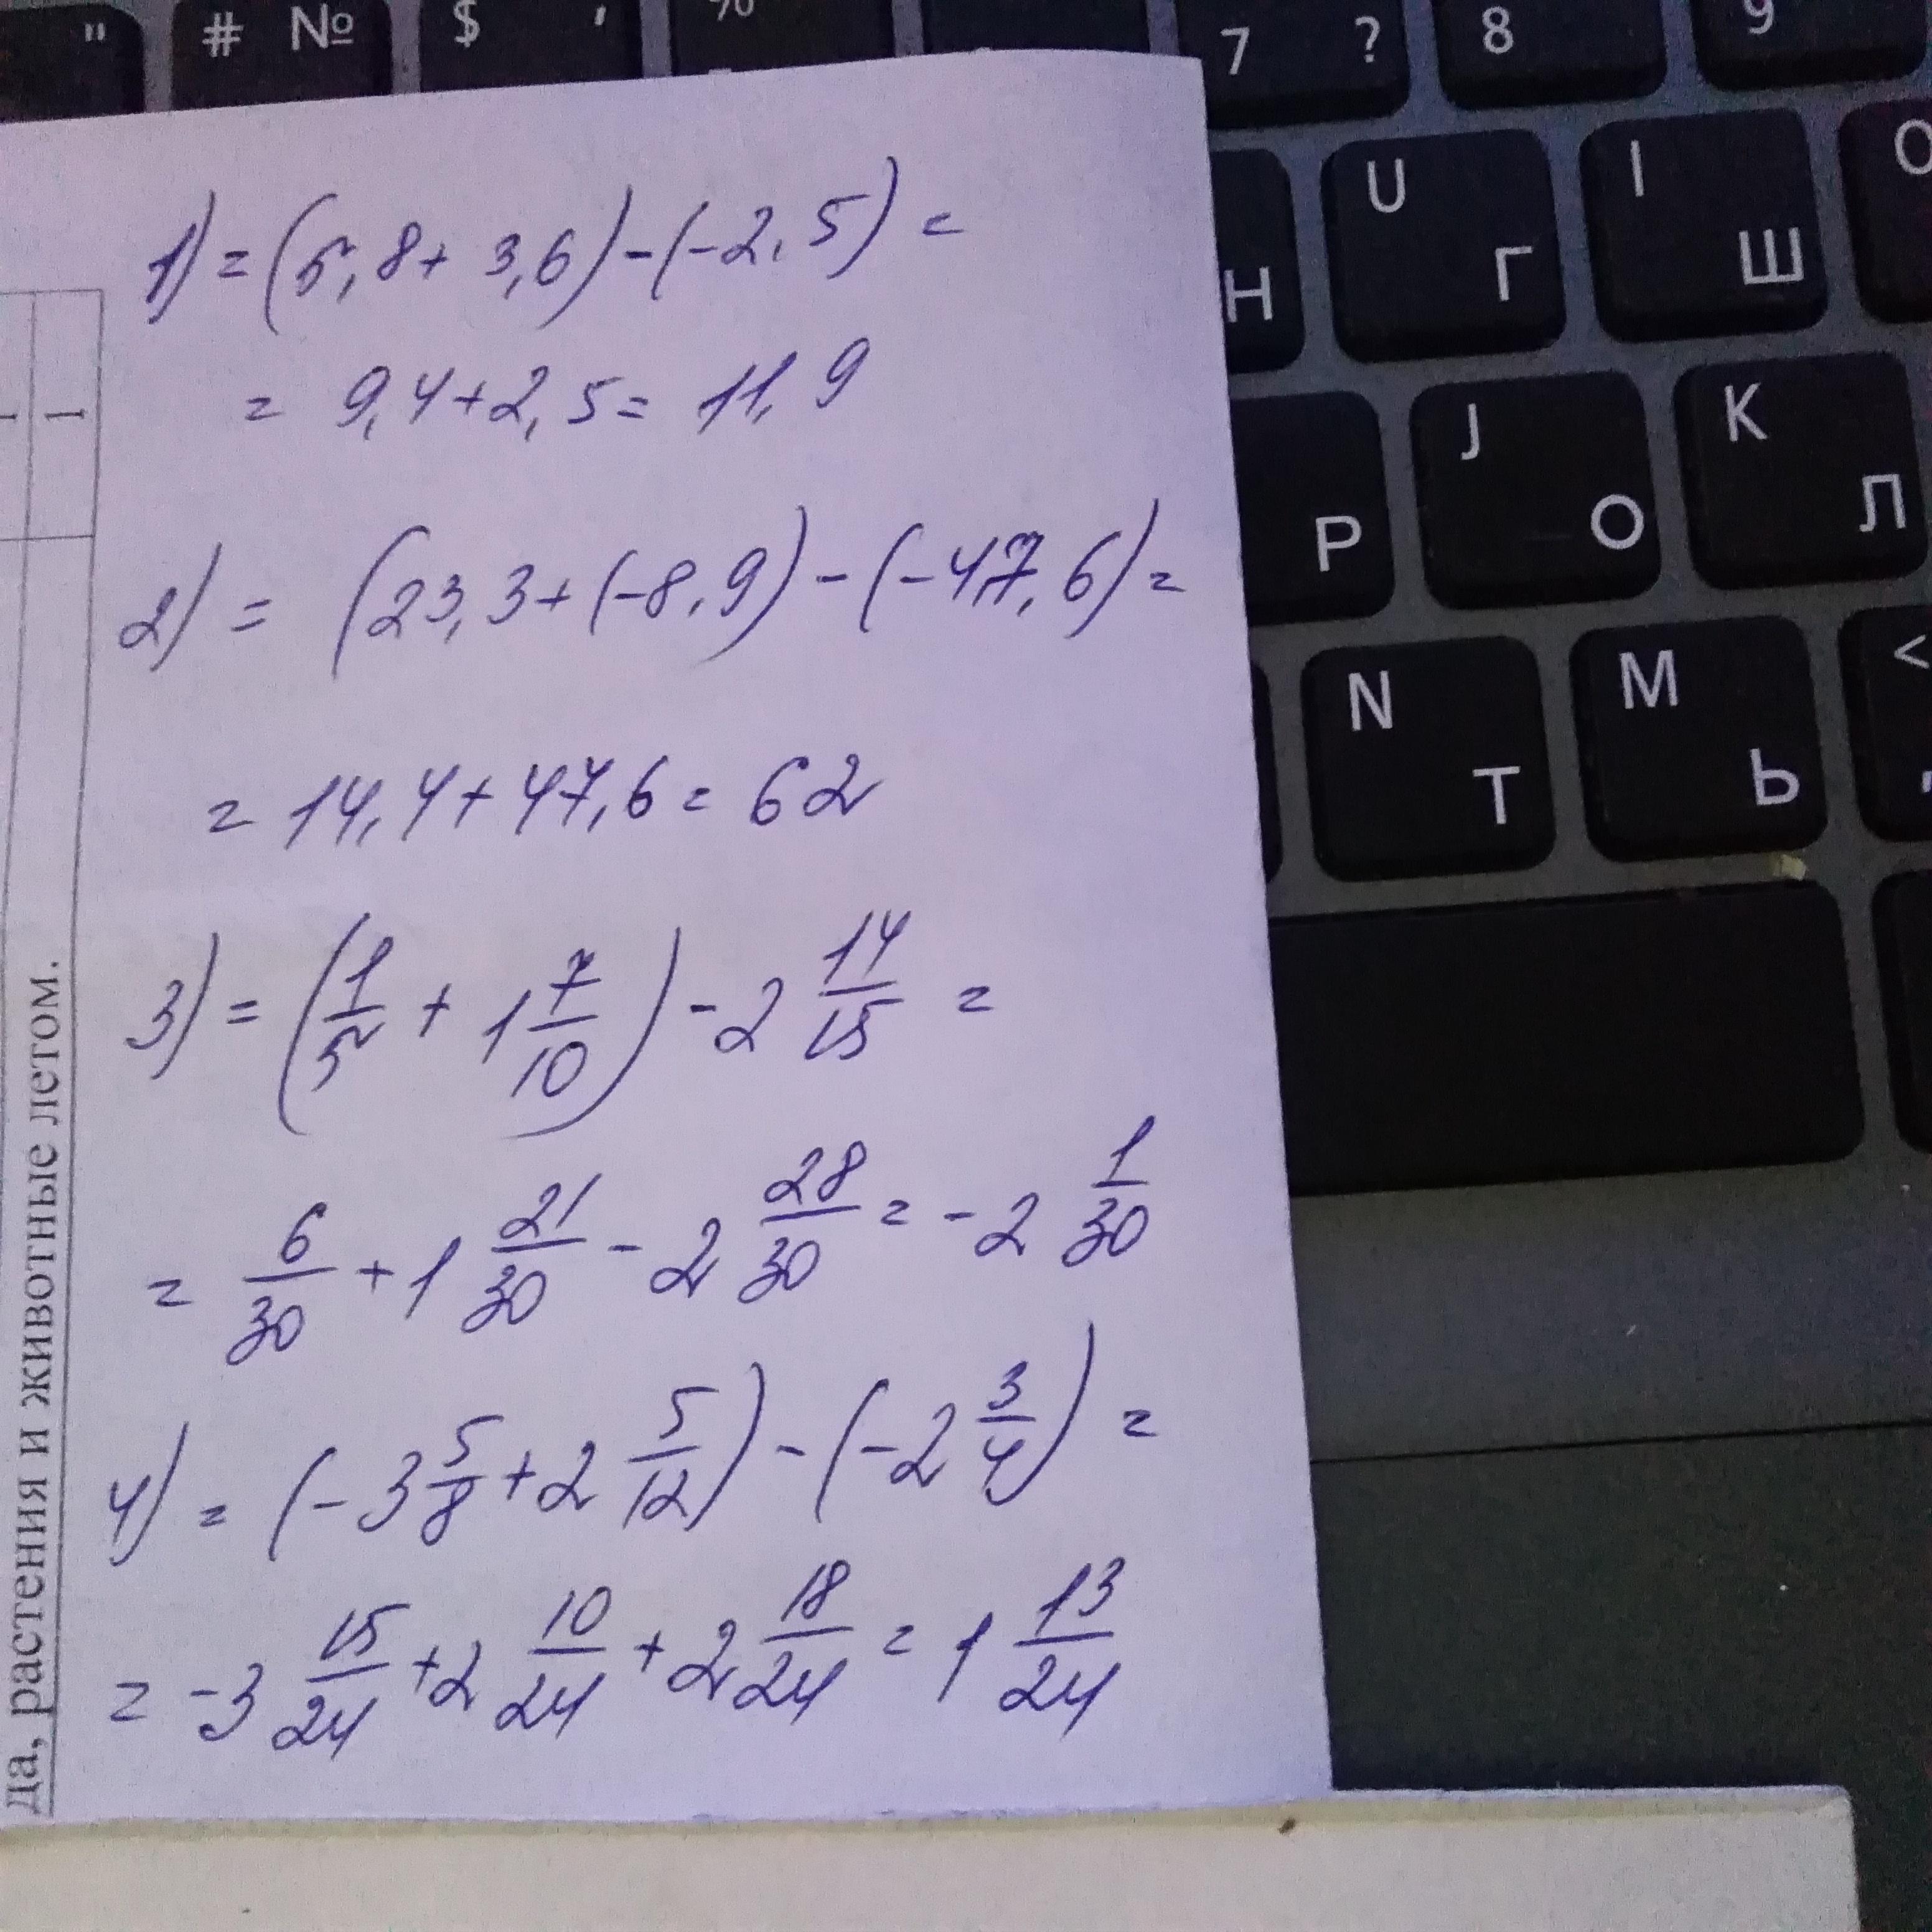 " # № $ ' %
7 ? 8 9
U Г I Ш O
Н
J О K Л
Р
N Т M Ь <
1) = (5,8 + 3,6) - (-2,5) =
= 9,4 + 2,5 = 11,9
2) = (23,3 + (-8,9) - (-47,6) =
= 14,4 + 47,6 = 62
3) = (1/5 + 1 7/10) - 2 14/15 =
= 6/30 + 1 21/30 - 2 28/30 = -2 1/30
4) = (-3 5/8 + 2 5/12) - (-2 3/4) =
= -3 15/24 + 2 10/24 + 2 18/24 = 1 13/24
1
да, растения и животные летом.